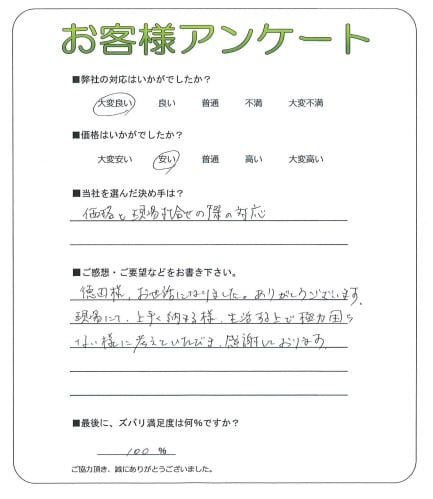 お客様アンケート
■弊社の対応はいかがでしたか？
大変良い 良い 普通 不満 大変不満
■価格はいかがでしたか？
大変安い 安い 普通 高い 大変高い
■当社を選んだ決め手は？
価格と現場打合せの際の対応
■ご感想・ご要望などをお書き下さい。
徳田様、お世話になりました。ありがとうございます。
現場にて、上手く納まる様、生活する上で極力困ら
ない様に考えていただき、感謝しております。
■最後に、ズバリ満足度は何％ですか？
100 %
ご協力頂き、誠にありがとうございました。